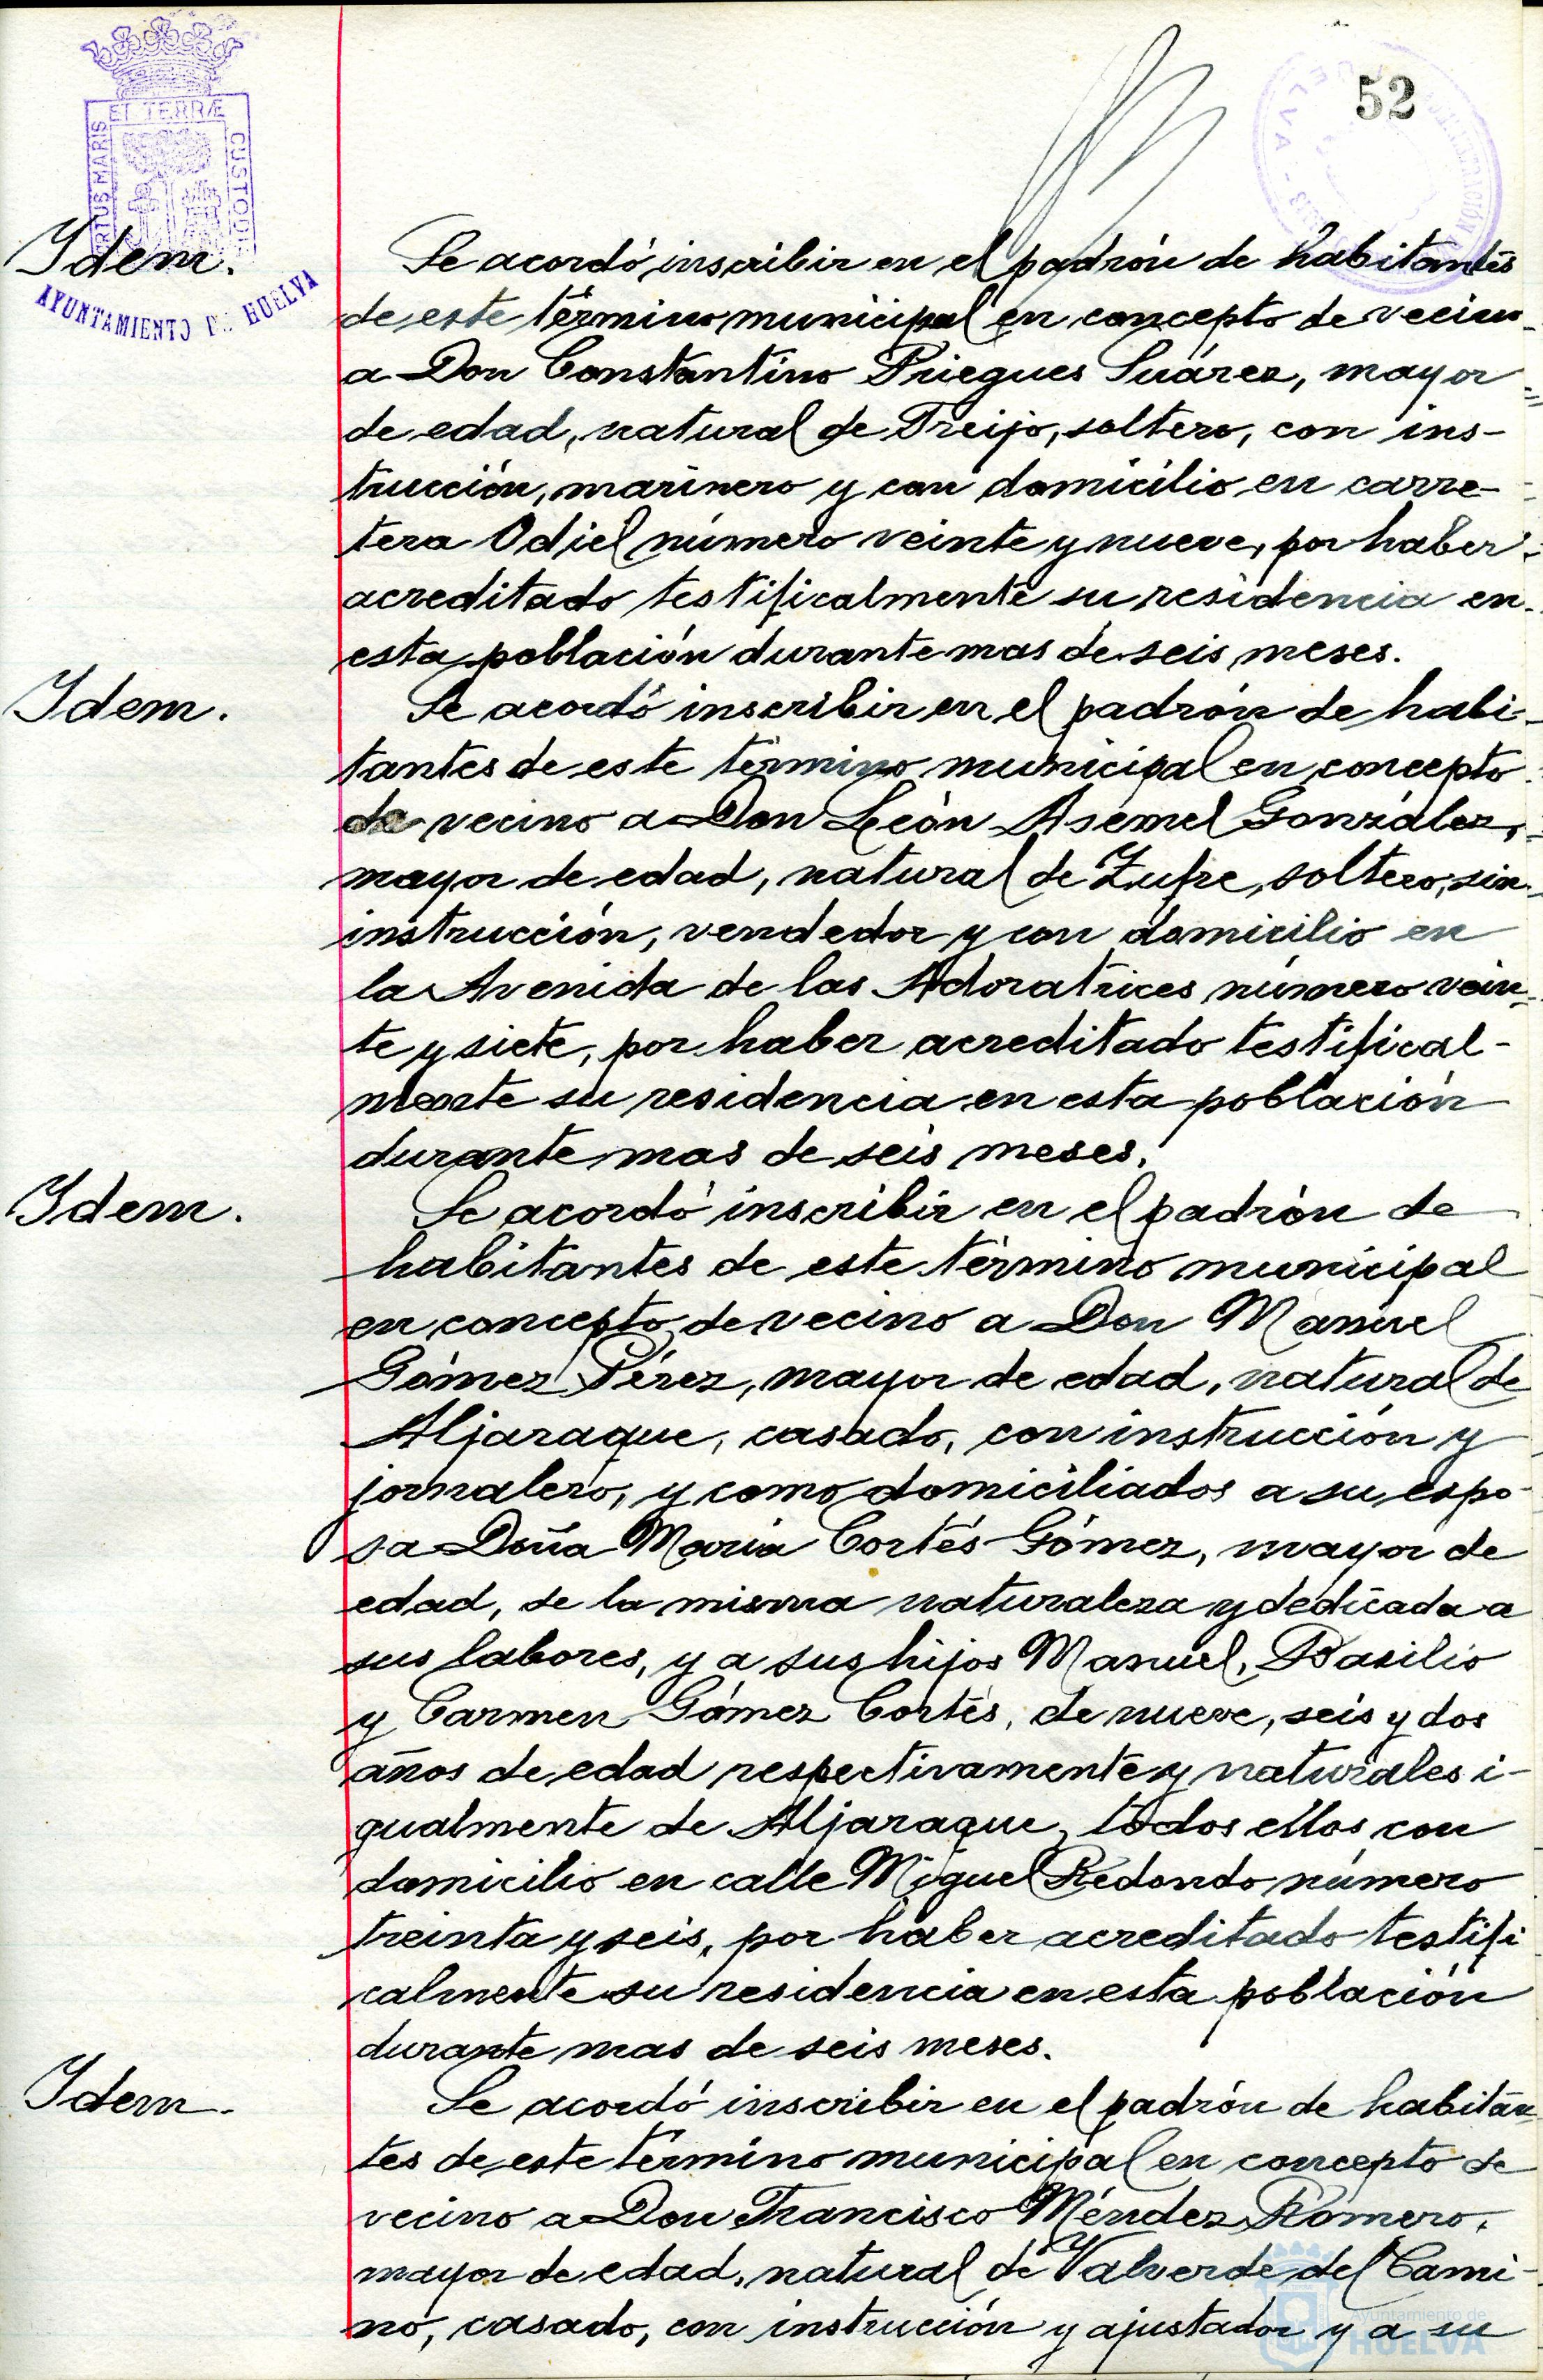 52
ET TERRÆ
PORTUS MARIS
CUSTODIA
AYUNTAMIENTO DE HUELVA
HUELVA
Idem. Se acordó inscribir en el padrón de habitantes
de este término municipal en concepto de vecino
a Don Constantino Priegues Suárez, mayor
de edad, natural de Treijo, soltero, con ins-
trucción, marinero y con domicilio en carre-
tera Odiel número veinte y nueve, por haber
acreditado testificalmente su residencia en
esta población durante mas de seis meses.
Idem. Se acordó inscribir en el padrón de habi-
tantes de este término municipal en concepto
de vecino a Don León Asemel González,
mayor de edad, natural de Zufre, soltero, sin
instrucción, vendedor y con domicilio en
la Avenida de las Adoratrices número vein-
te y siete, por haber acreditado testifical-
mente su residencia en esta población
durante mas de seis meses.
Idem. Se acordó inscribir en el padrón de
habitantes de este término municipal
en concepto de vecino a Don Manuel
Gómez Pérez, mayor de edad, natural de
Aljaraque, casado, con instrucción y
jornalero, y como domiciliados a su espo-
sa Doña María Cortés Gómez, mayor de
edad, de la misma naturaleza y dedicada a
sus labores, y a sus hijos Manuel, Basilio
y Carmen Gómez Cortés, de nueve, seis y dos
años de edad respectivamente y naturales i-
gualmente de Aljaraque, todos ellos con
domicilio en calle Miguel Redondo número
treinta y seis, por haber acreditado testifi
calmente su residencia en esta población
durante mas de seis meses.
Idem. Se acordó inscribir en el padrón de habitan
tes de este término municipal en concepto de
vecino a Don Francisco Méndez Romero,
mayor de edad, natural de Valverde del Cami-
no, casado, con instrucción y ajustador y a su
Ayuntamiento de
HUELVA